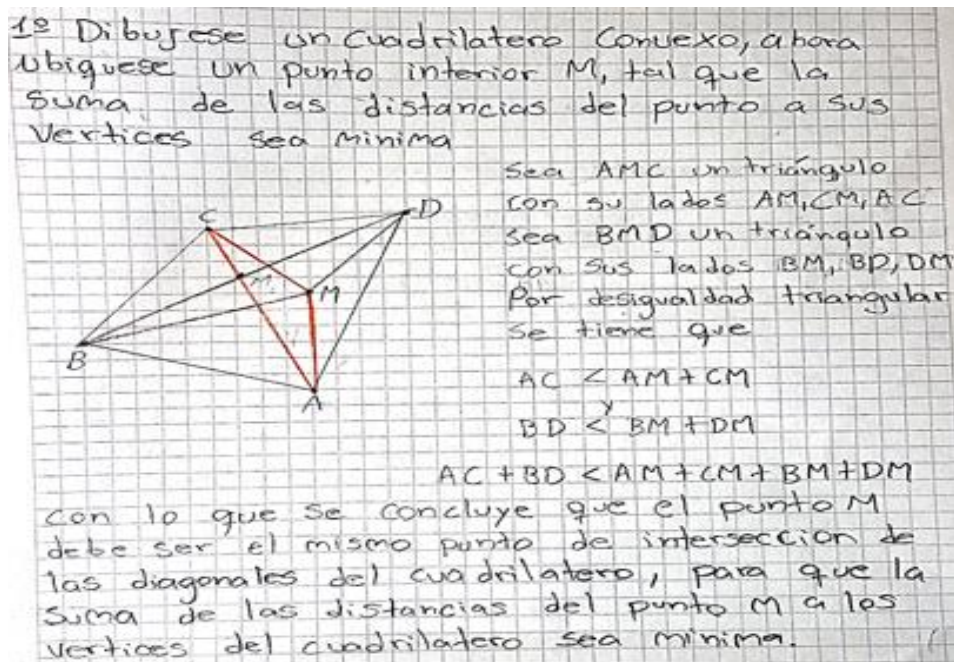 1º Dibujese un cuadrilatero convexo, ahora
ubiquese un punto interior M, tal que la
suma de las distancias del punto a sus
vertices sea minima
sea AMC un triángulo
con su lados AM, CM, AC
sea BMD un triángulo
con sus lados BM, BD, DM
Por desigualdad triangular
se tiene que
AC < AM + CM
y
BD < BM + DM
AC + BD < AM + CM + BM + DM
C
D
M
M
B
A
con lo que se concluye que el punto M
debe ser el mismo punto de interseccion de
las diagonales del cuadrilatero, para que la
suma de las distancias del punto M a los
vertices del cuadrilatero sea minima.